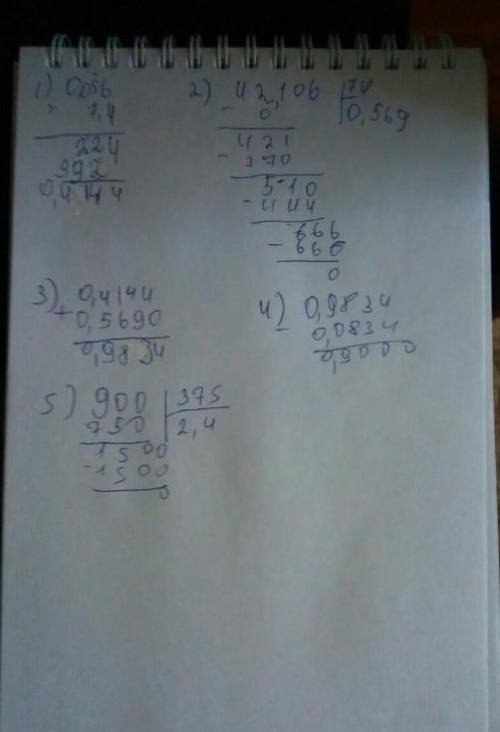 1) 0,056
× 7,4
224
392
0,4144
2) 42,106 | 74
- 0 | 0,569
421
- 370
510
- 444
666
- 660
0
3) 0,4144
+ 0,5690
0,9834
4) 0,9834
- 0,0834
0,9000
5) 900 | 375
750 | 2,4
1500
- 1500
0